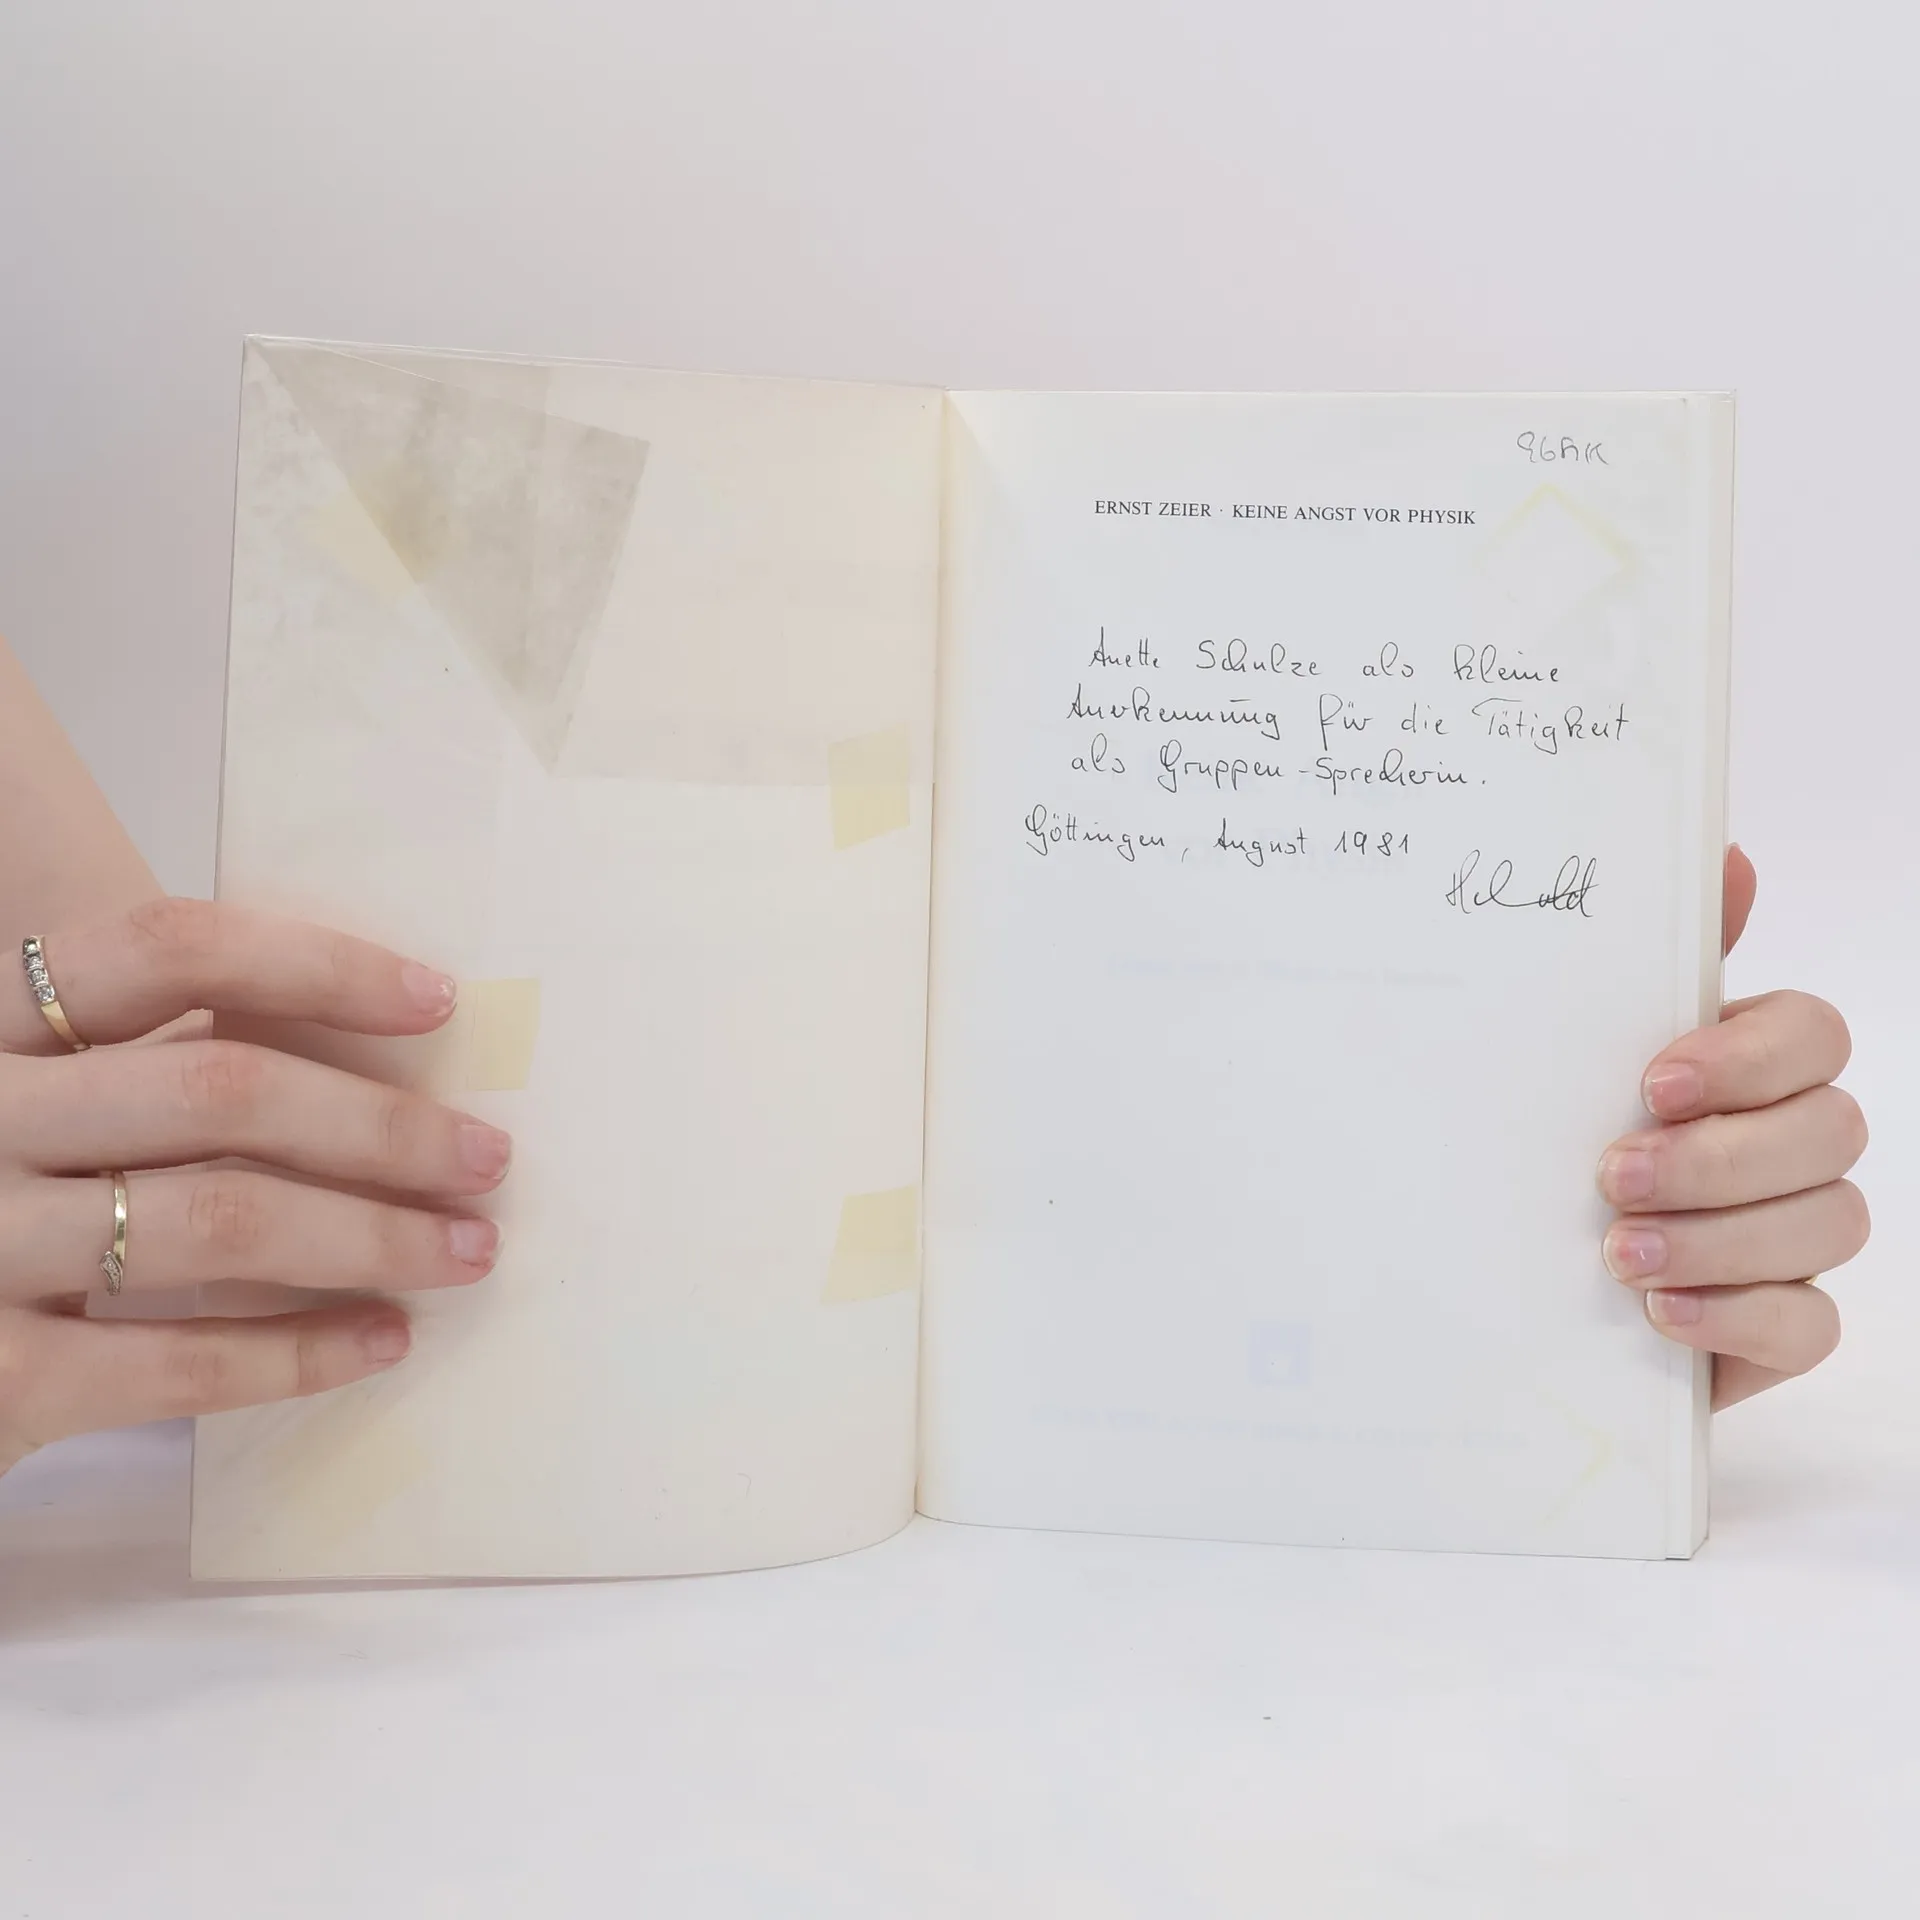 ERNST ZEIER · KEINE ANGST VOR PHYSIK
Anette Schulze als kleine
Anerkennung für die Tätigkeit
als Gruppen-Sprecherin.
Göttingen, August 1981